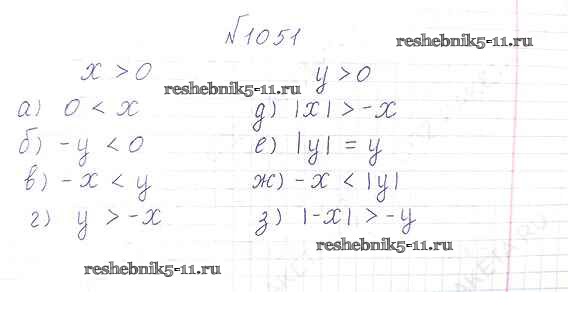 №1051
reshebnik5-11.ru
x > 0 y > 0
reshebnik5-11.ru
а) 0 < x д) |x| > -x
б) -y < 0 е) |y| = y
в) -x < y ж) -x < |y|
г) y > -x з) |-x| > -y
reshebnik5-11.ru
reshebnik5-11.ru